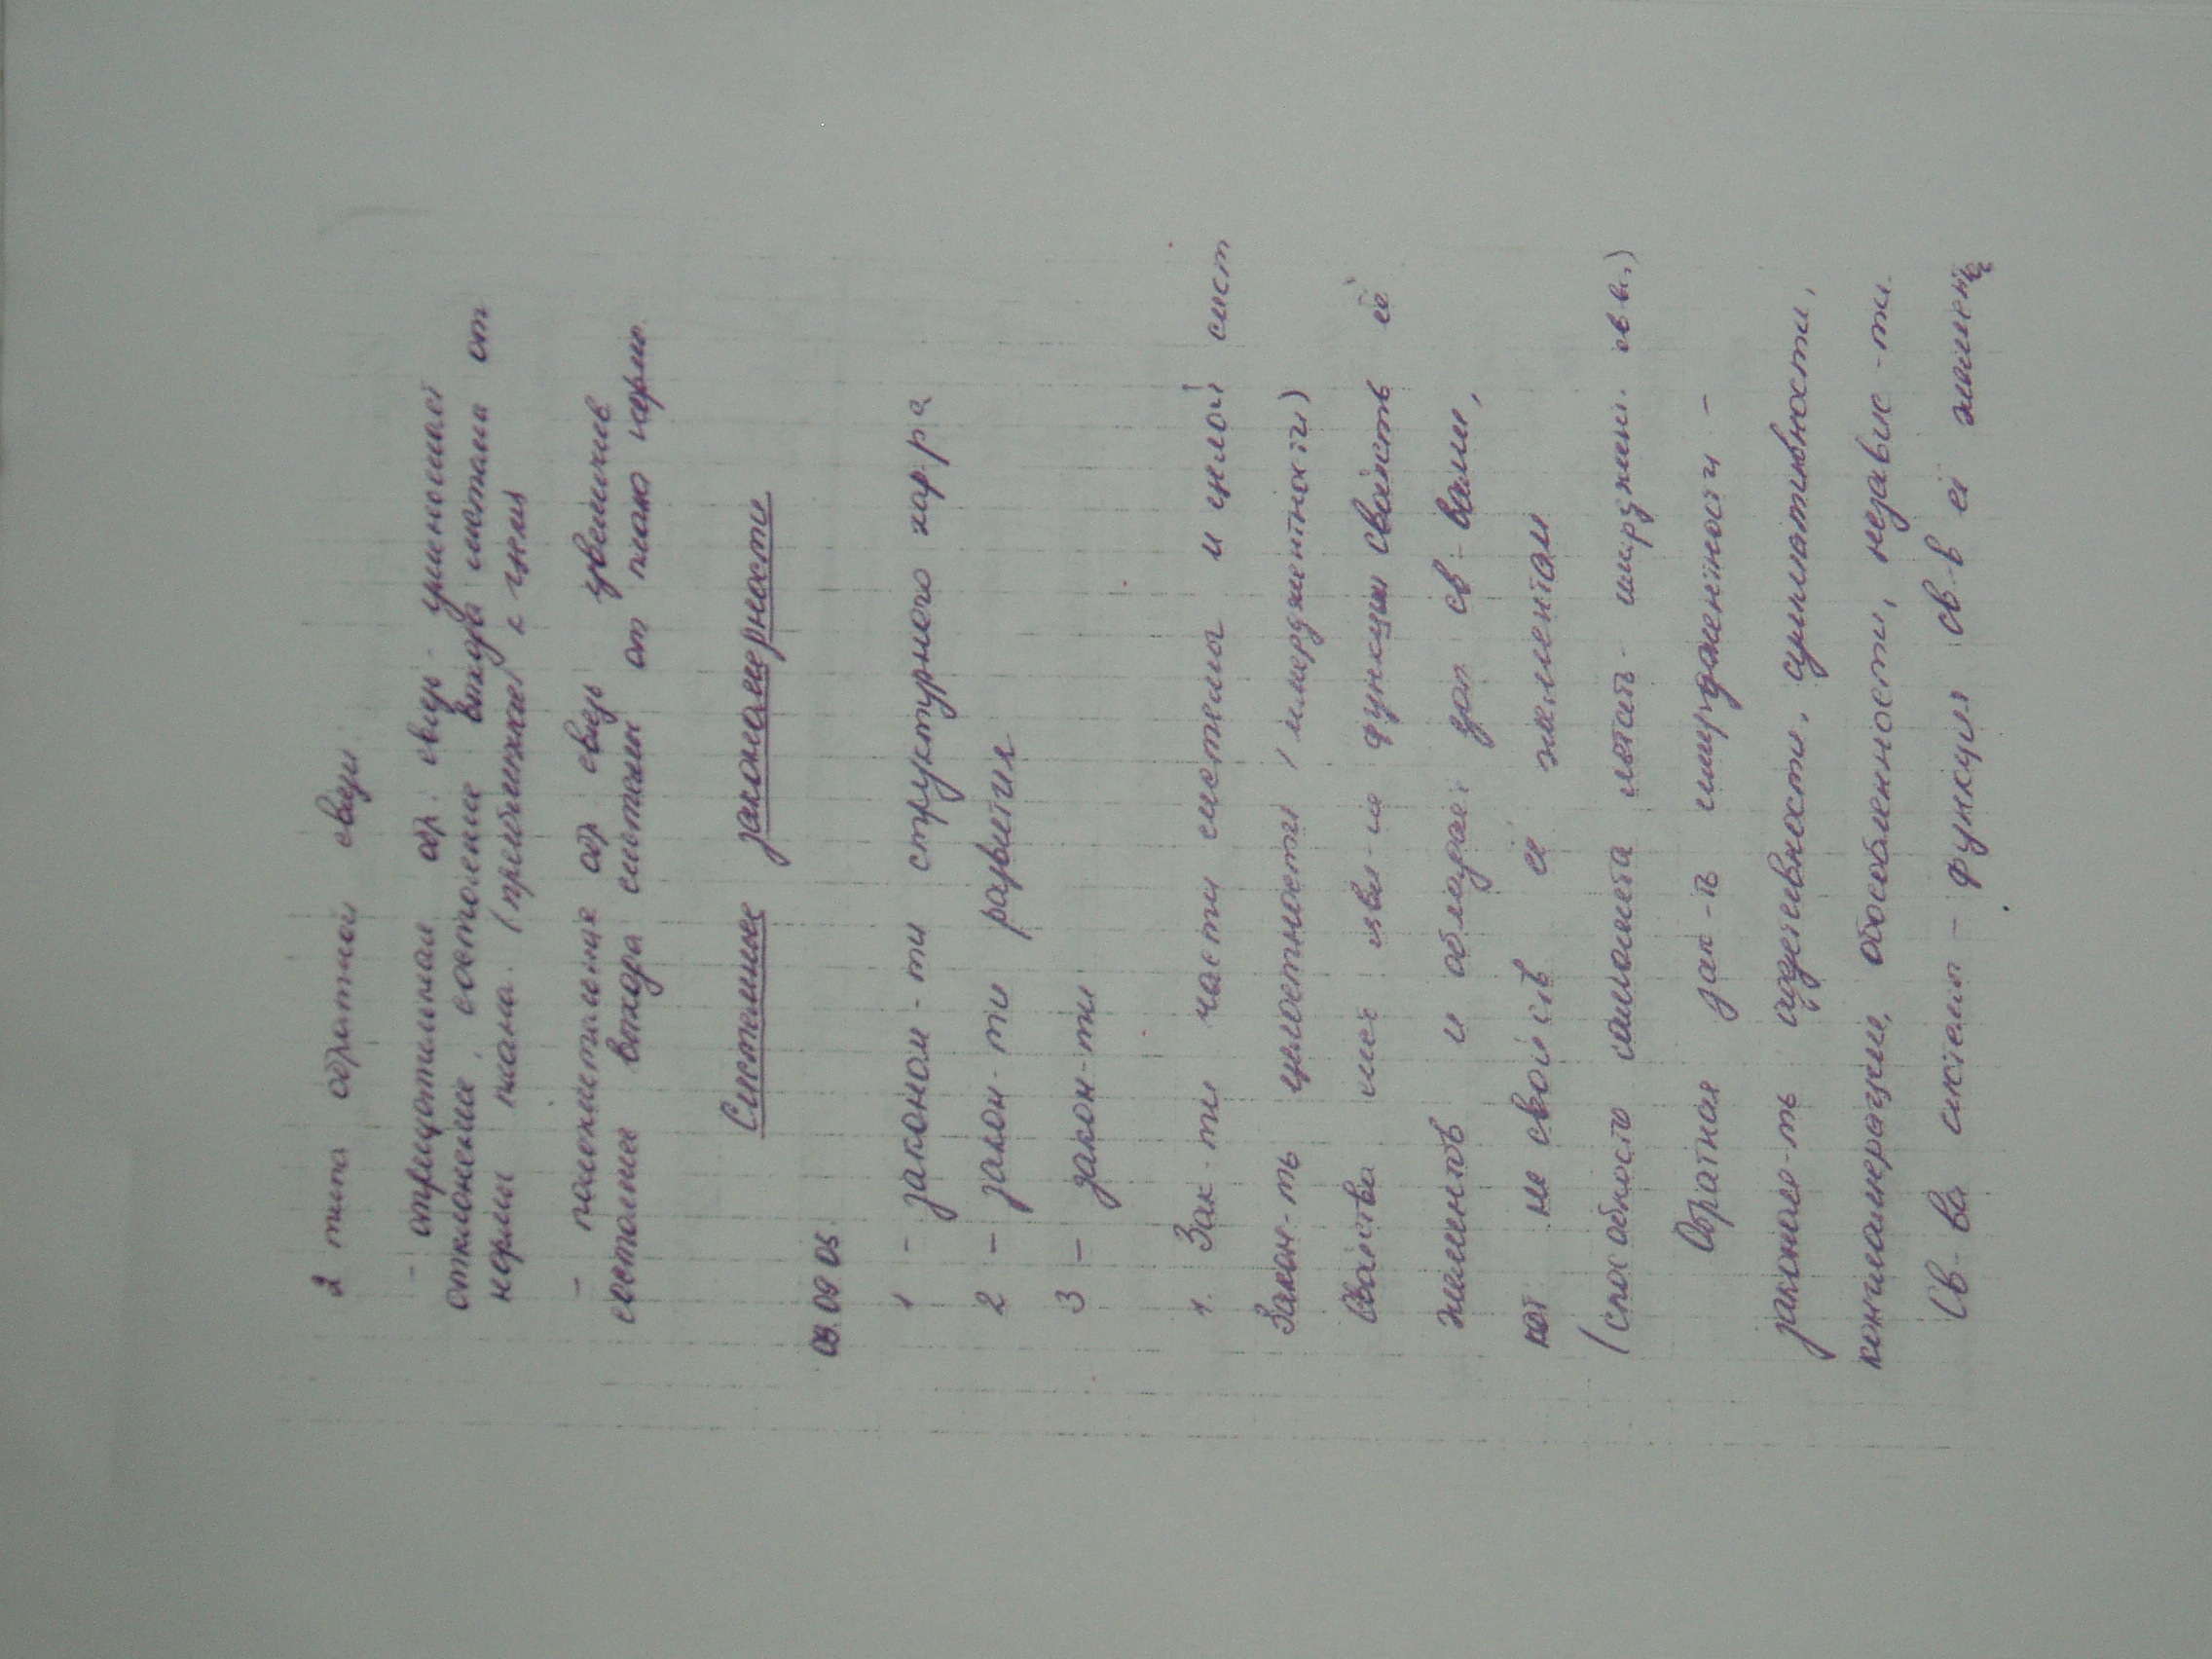 2 типа обратной связи
- отрицательная обр. связь - уменьшает
отклонения. состояние выхода системы от
нормы плана. (приближает к цели
- положительная обр связь увеличив
состояние выхода системы от плано нормы
Системные закономерности
09.09 05
1 - законом-ти структурного хар-ра
2 - закон-ти развития
3 - закон-ти
1. Зак-ти части системы и целой сист
Закон-ть целостности (эмерджентности)
Свойства сист явл-ся функции свойств её
элементов и обладает доп св-вами,
кот не свойств её элементам
(способность самолета летать - эмерджен. св-в.)
Обратная зак-ть эмерджентности -
законом-ть аддетивности, суммативности,
конгламерации, обособленности, независ-ти.
Св-ва систем - функция св-в её элемент